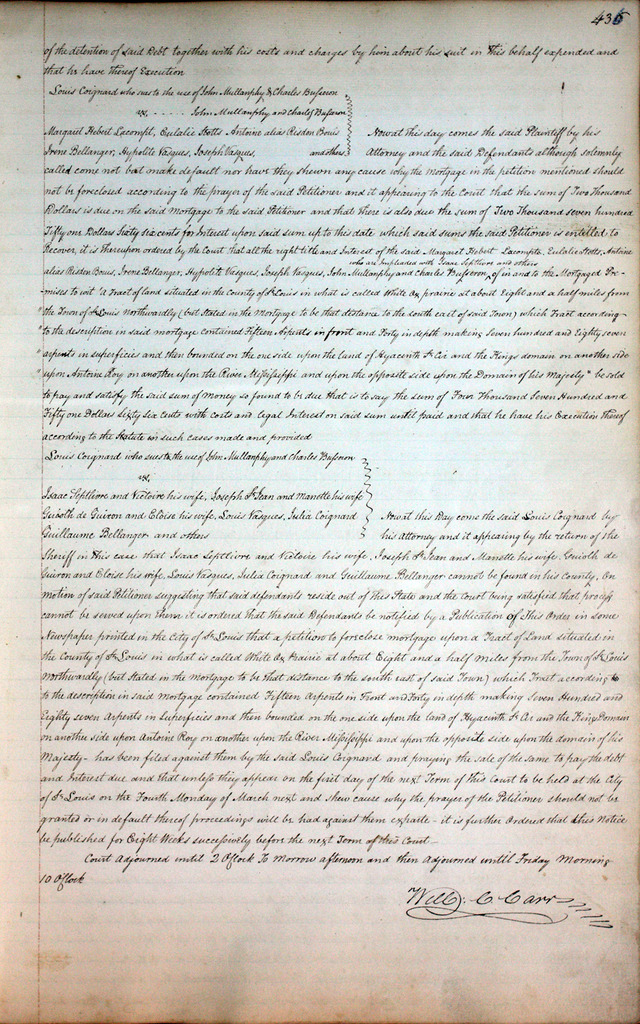 435
of the detention of said Debt together with his costs and charges by him about his suit in this behalf expended and
that he have thereof Execution
Louis Coignard who sues to the use of John Mullanphy & Charles Busseron
vs, - - - - - John Mullanphy and Charles Busseron
Margaret Hebert Lecompt, Eulalie Stotts Antoine alias Risdon Bouis
Irene Bellanger, Hypolite Vasques, Joseph Vasques, and others
Now at this day comes the said Plaintiff by his
Attorney and the said Defendants although solemnly
called come not but make default nor have they shewn any cause why the Mortgage in the petition mentioned should
not be foreclosed according to the prayer of the said Petitioner and it appearing to the Court that the sum of Two Thousand
Dollars is due on the said Mortgage to the said Petitioner and that there is also due the sum of Two Thousand seven hundred
Fifty one Dollars Sixty six cents for Interest upon said sum up to this date which said sums the said Petitioner is entitled to
Recover, it is thereupon ordered by the Court that all the right title and Interest of the said Margaret Hebert Lacompte, Eulalie Stotts, Antoine
who are Impleaded with Isaac Septlivre and others
alias Risdon Bouis, Irene Bellanger, Hypolite Vasques, Joseph Vasques, John Mullanphy and Charles Busseron, of in and to the Mortgaged Pre-
mises to wit "a Tract of land situated in the County of St Louis in what is called White Ox prairie at about Eight and a half miles form
"the Town of St Louis Northwardly (but Stated in the Mortgage to be that distance to the south east of said Town) which Tract according-
"to the description in said mortgage contained Fifteen Arpents in front and Forty in depth making Seven hundred and Eighty seven
"arpents in superficies and then bounded on the one side upon the land of Hyacinth St Cir and the Kings domain on another side
"upon Antoine Roy on another upon the River Mississippi and upon the opposite side upon the Domain of his Majesty" be sold
to pay and satisfy the said sum of money so found to be due that is to say the sum of Four Thousand Seven Hundred and
Fifty one Dollars sixty six cents with costs and legal Interest on said sum until paid and that he have his Execution thereof
according to the Statute in such cases made and provided
Louis Coignard who sues to the use of John Mullanphy and Charles Busseron
vs,
Isaac Septlivre and Victoire his wife, Joseph St Jean and Manette his wife
Guiboth de Guiron and Eloise his wife, Louis Vasques, Julia Coignard
Guillaume Bellanger and others
Now at this Day come the said Louis Coignard by
his Attorney and it appearing by the return of the
Sheriff in this case that Isaac Septlivre and Victoire his wife, Joseph St Jean and Manette his wife, Guioth de
Guiron and Eloise his wife, Louis Vasques, Julia Coignard and Guillaume Bellanger cannot be found in his County, On
motion of said Petitioner suggesting that said defendants reside out of this State and the Court being satisfied that process
cannot be served upon them it is ordered that the said Defendants be notified by a Publication of This Order in some
Newspaper printed in the City of St Louis that a petition to foreclose mortgage upon a Tract of Land situated in
the County of St Louis in what is called White Ox Prairie at about Eight and a half miles from the Town of St Louis
Northwardly (but Stated in the mortgage to be that distance to the south east of said Town) which Tract according to
to the description in said Mortgage contained Fifteen Arpents in Front and Forty in depth making Seven Hundred and
Eighty seven Arpents in Superficies and then bounded on the one side upon the land of Hyacinth St Cir and the Kings Domain
on another side upon Antoine Roy on another upon the River Mississippi and upon the opposite side upon the domain of his
Majesty - has been filed against them by the said Louis Coignard and praying the sale of the same to pay the debt
and Interest due and that unless they appear on the first day of the next Term of this Court to be held at the City
of St Louis on the Fourth Monday of March next and shew cause why the prayer of the Petitioner should not be
granted or in default thereof proceedings will be had against them exparte - it is further Ordered that this Notice
be published for Eight Weeks successively before the next Term of this Court -
Court Adjourned until 2 O'Clock To Morrow afternoon and then Adjourned until Friday Morning
10 O'Clock
Will: C Carr